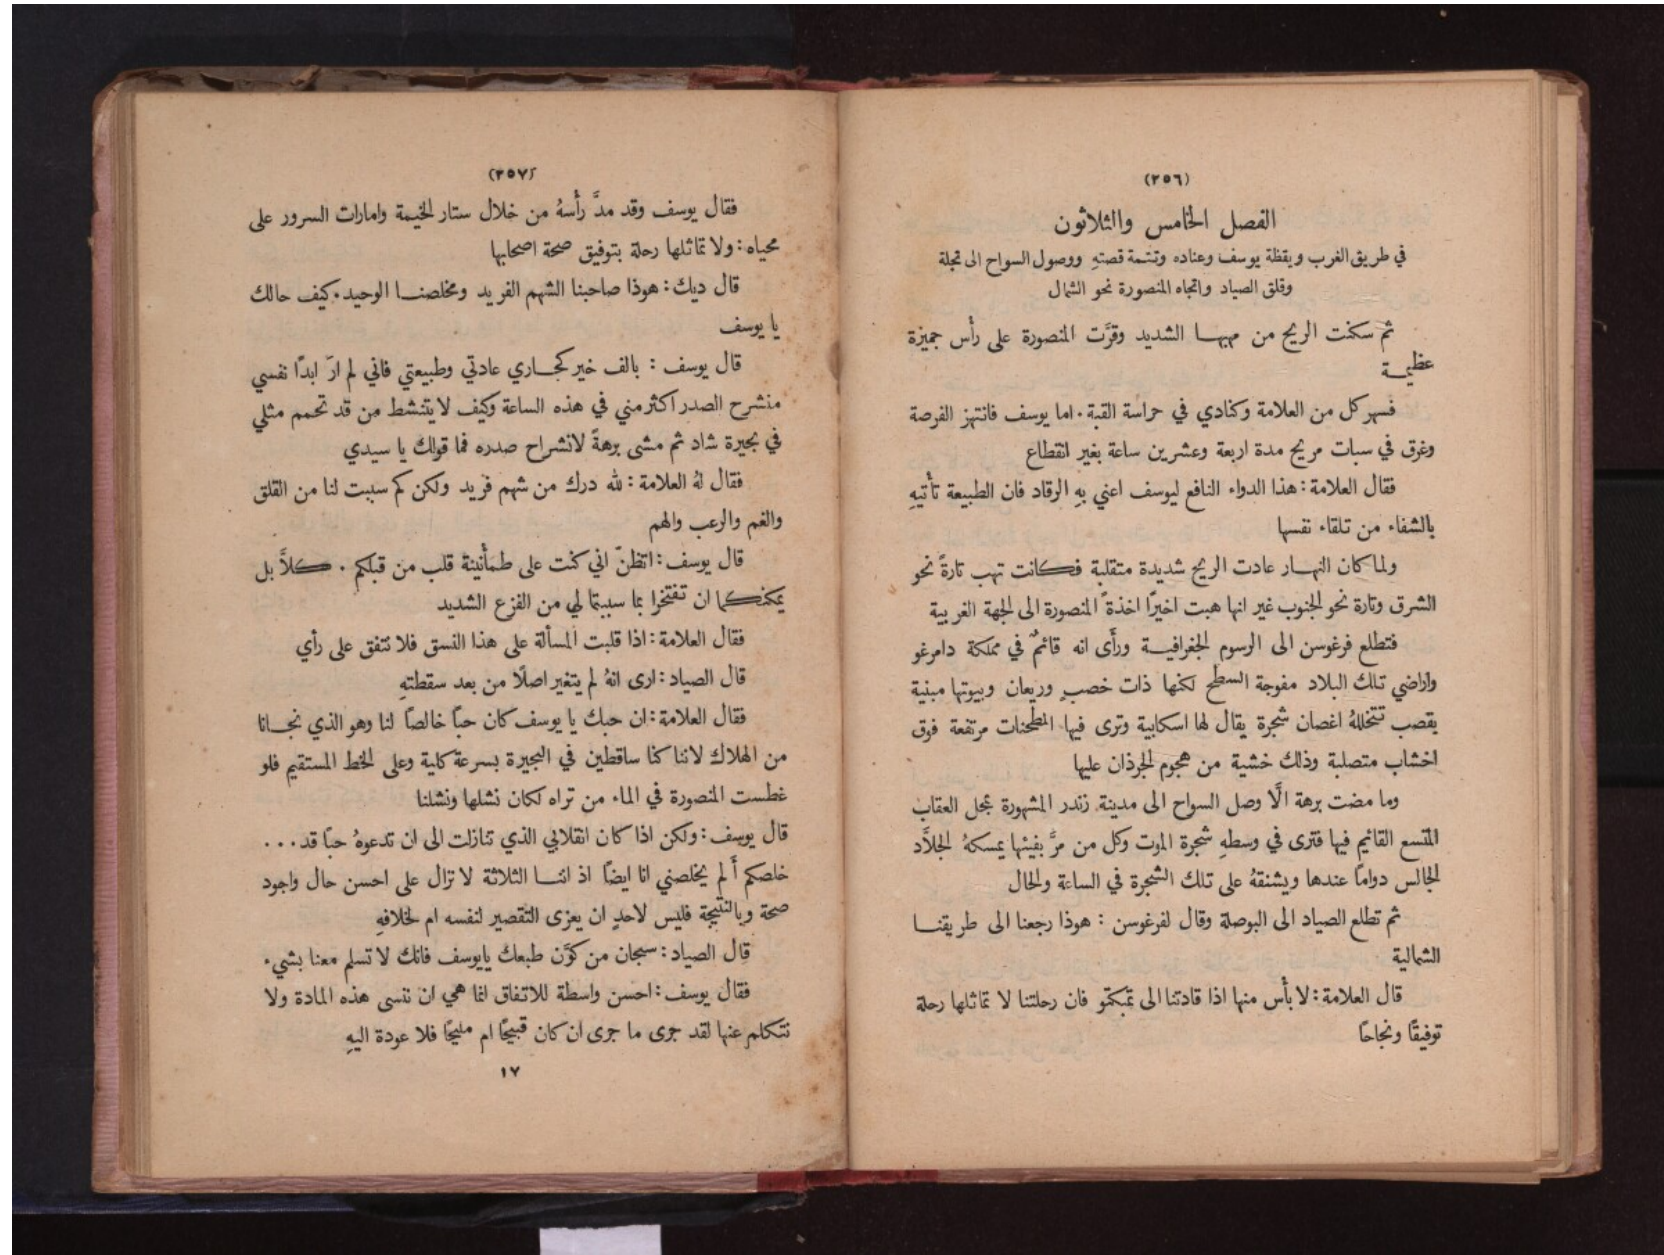 (٢٥٦)
الفصل الخامس والثلاثون
في طريق الغرب ويقظة يوسف وعناده وتتمة قصتهِ ووصول السواح الى تجلة
وقلق الصياد واتجاه المنصورة نحو الشمال
ثم سكنت الريح من مهبها الشديد وقرَّت المنصورة على رأس جميزة
عظيمة
فسهر كل من العلامة وكنادي في حراسة القبة. اما يوسف فانتهز الفرصة
وغرق في سبات مريح مدة اربعة وعشرين ساعة بغير انقطاع
فقال العلامة: هذا الدواء النافع ليوسف اعني بهِ الرقاد فان الطبيعة تأتيهِ
بالشفاء من تلقاء نفسها
ولما كان النهار عادت الريح شديدة متقلبة فكانت تهب تارةً نحو
الشرق وتارة نحو الجنوب غير انها هبت اخيرًا اخذةً المنصورة الى الجهة الغربية
فتطلع فرغوسن الى الرسوم الجغرافية ورأَى انه قائمٌ في مملكة دامرغو
واراضي تلك البلاد مفوجة السطح لكنها ذات خصبٍ وريعان وبيوتها مبنية
بقصب تتخللهُ اغصان شجرة يقال لها اسكابية وترى فيها المطحنات مرتفعة فوق
اخشاب متصلبة وذلك خشية من هجوم الجرذان عليها
وما مضت برهة الَّا وصل السواح الى مدينة زندر المشهورة بمحل العقاب
المتسع القايم فيها فترى في وسطهِ شجرة الموت وكل من مرَّ بفيئها يمسكهُ الجلاَّد
الجالس دوامًا عندها ويشنقهُ على تلك الشجرة في الساعة والحال
ثم تطلع الصياد الى البوصلة وقال لفرغوسن : هوذا رجعنا الى طريقنا
الشمالية
قال العلامة: لا بأس منها اذا قادتنا الى تمبكتو فان رحلتنا لا تماثلها رحلة
توفيقًا ونجاحًا
(٢٥٧)
فقال يوسف وقد مدَّ رأسهُ من خلال ستار الخيمة وامارات السرور على
محياه: ولا تماثلها رحلة بتوفيق صحة اصحابها
قال ديك: هوذا صاحبنا الشهم الفريد ومخلصنا الوحيد. كيف حالك
يا يوسف
قال يوسف : بالف خير كجاري عادتي وطبيعتي فاني لم ارَ ابدًا نفسي
منشرح الصدر اكثر مني في هذه الساعة وكيف لا يتنشط من قد تحمم مثلي
في بحيرة شاد ثم مشى برهةً لانشراح صدره فما قولك يا سيدي
فقال لهُ العلامة: لله درك من شهم فريد ولكن كم سببت لنا من القلق
والغم والرعب والهم
قال يوسف: اتظنّ اني كنت على طمأنينة قلب من قبلكم . كلاَّ بل
يمكنكما ان تفتخرا بما سببتما لي من الفزع الشديد
فقال العلامة: اذا قلبت المسألة على هذا النسق فلا نتفق على رأي
قال الصياد: ارى انهُ لم يتغير اصلًا من بعد سقطتهِ
فقال العلامة: ان حبك يا يوسف كان حبًا خالصًا لنا وهو الذي نجانا
من الهلاك لاننا كنا ساقطين في البحيرة بسرعة كلية وعلى الخط المستقيم فلو
غطست المنصورة في الماء من تراه لكان نشلها ونشلنا
قال يوسف: ولكن اذا كان انقلابي الذي تنازلت الى ان تدعوهُ حبًا قد...
خلصكم أَلم يخلصني انا ايضًا اذ اننا الثلاثة لا نزال على احسن حال واجود
صحة وبالنتيجة فليس لاحدٍ ان يعزى التقصير لنفسه ام لخلافهِ
قال الصياد: سبحان من كوَّن طبعك يايوسف فانك لا تسلم معنا بشيء
فقال يوسف: احسن واسطة للاتفاق انما هي ان ننسى هذه المادة ولا
نتكلم عنها لقد جرى ما جرى ان كان قبيحًا ام مليحًا فلا عودة اليهِ
١٧